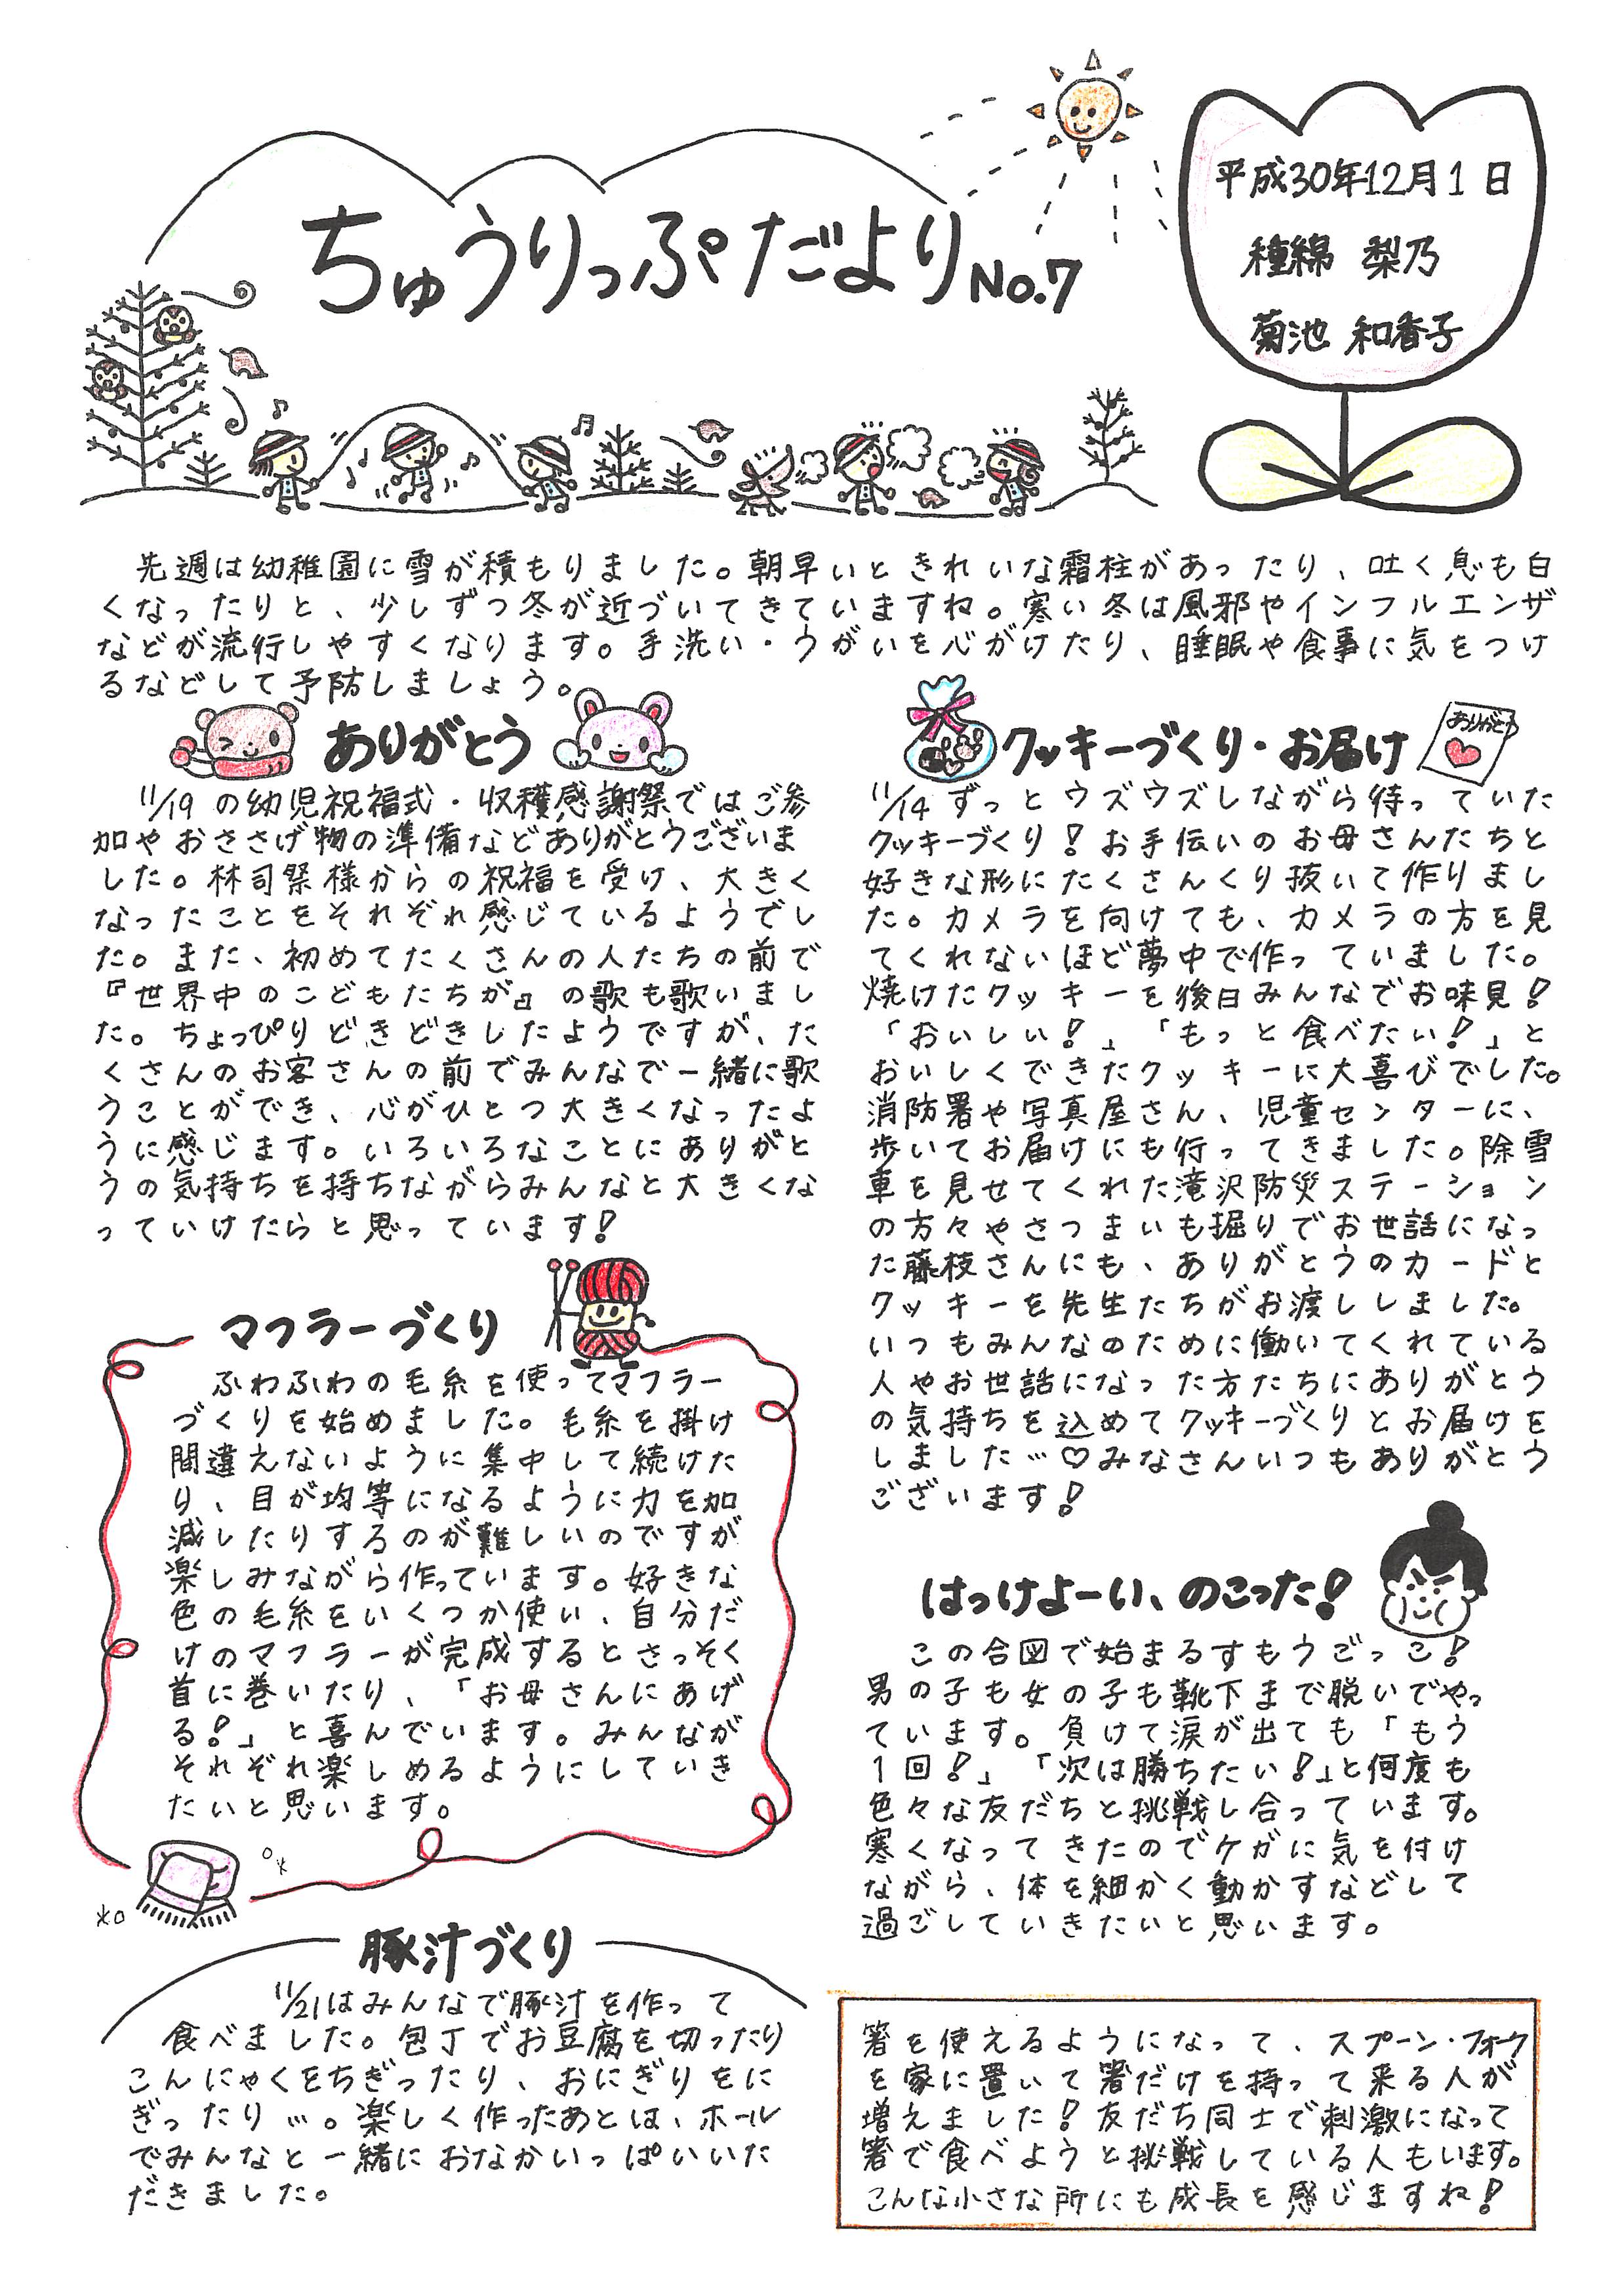 ちゅうりっぷだより No.7
平成30年12月1日
種綿 梨乃
菊池 和香子
先週は幼稚園に雪が積もりました。朝早いときれいな霜柱があったり、吐く息も白
くなったりと、少しずつ冬が近づいてきていますね。寒い冬は風邪やインフルエンザ
などが流行しやすくなります。手洗い・うがいを心がけたり、睡眠や食事に気をつけ
るなどして予防しましょう。
ありがとう
11/19の幼児祝福式・収穫感謝祭ではご参
加やおささげ物の準備などありがとうございま
した。林司祭様からの祝福を受け、大きく
なったことをそれぞれ感じているようでし
た。また、初めてたくさんの人たちの前で
『世界中のこどもたちが』の歌も歌いまし
た。ちょっぴりどきどきしたようですが、た
くさんのお客さんの前でみんなで一緒に歌
うことができ、心がひとつ大きくなったよ
うに感じます。いろいろなことにありがと
うの気持ちを持ちながらみんなと大きくな
っていけたらと思っています!
マフラーづくり
ふわふわの毛糸を使ってマフラー
づくりを始めました。毛糸を掛け
間違えないように集中して続けた
り、目が均等になるように力を加
減したりするのが難しいのですが
楽しみながら作っています。好きな
色の毛糸をいくつか使い、自分だ
けのマフラーが完成するとさっそく
首に巻いたり、「お母さんにあげ
る!」と喜んでいます。みんなが
それぞれ楽しめるようにしていき
たいと思います。
豚汁づくり
11/21はみんなで豚汁を作って
食べました。包丁でお豆腐を切ったり
こんにゃくをちぎったり、おにぎりをに
ぎったり…。楽しく作ったあとは、ホール
でみんなと一緒におなかいっぱいいた
だきました。
クッキーづくり・お届け
ありがとう
11/14ずっとウズウズしながら待っていた
クッキーづくり!お手伝いのお母さんたちと
好きな形にたくさんくり抜いて作りまし
た。カメラを向けても、カメラの方を見
てくれないほど夢中で作っていました。
焼けたクッキーを後日みんなでお味見!
「おいしい!」「もっと食べたい!」と
おいしくできたクッキーに大喜びでした。
消防署や写真屋さん、児童センターに、
歩いてお届けにも行ってきました。除雪
車を見せてくれた滝沢防災ステーション
の方々やさつまいも掘りでお世話になっ
た藤枝さんにも、ありがとうのカードと
クッキーを先生たちがお渡ししました。
いつもみんなのために働いてくれている
人やお世話になった方たちにありがとう
の気持ちを込めてクッキーづくりとお届けを
しました…♡みなさんいつもありがとう
ございます!
はっけよーい、のこった!
この合図で始まるすもうごっこ!
男の子も女の子も靴下まで脱いでやっ
ています。負けて涙が出ても「もう
1回!」「次は勝ちたい!」と何度も
色々な友だちと挑戦し合っています。
寒くなってきたのでケガに気を付け
ながら、体を細かく動かすなどして
過ごしていきたいと思います。
箸を使えるようになって、スプーン・フォーク
を家に置いて箸だけを持って来る人が
増えました!友だち同士で刺激になって
箸で食べようと挑戦している人もいます。
こんな小さな所にも成長を感じますね!